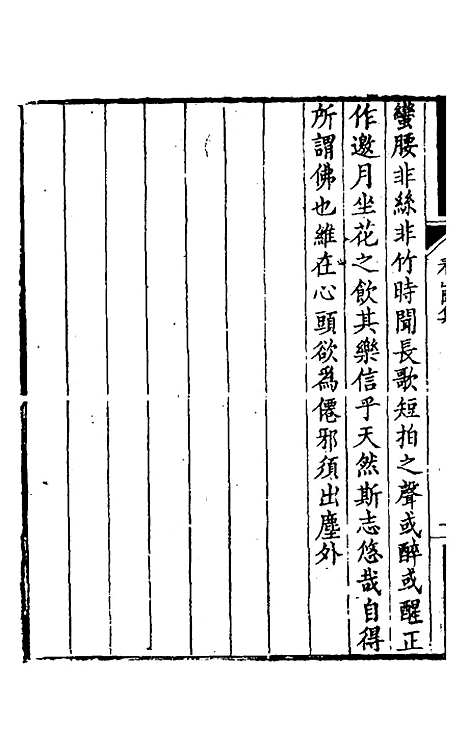 蠻腰非絲非竹時聞長歌短拍之聲或醉或醒正
作邀月坐花之飲其樂信乎天然斯志悠哉自得
所謂佛也維在心頭欲爲僊邪須出塵外